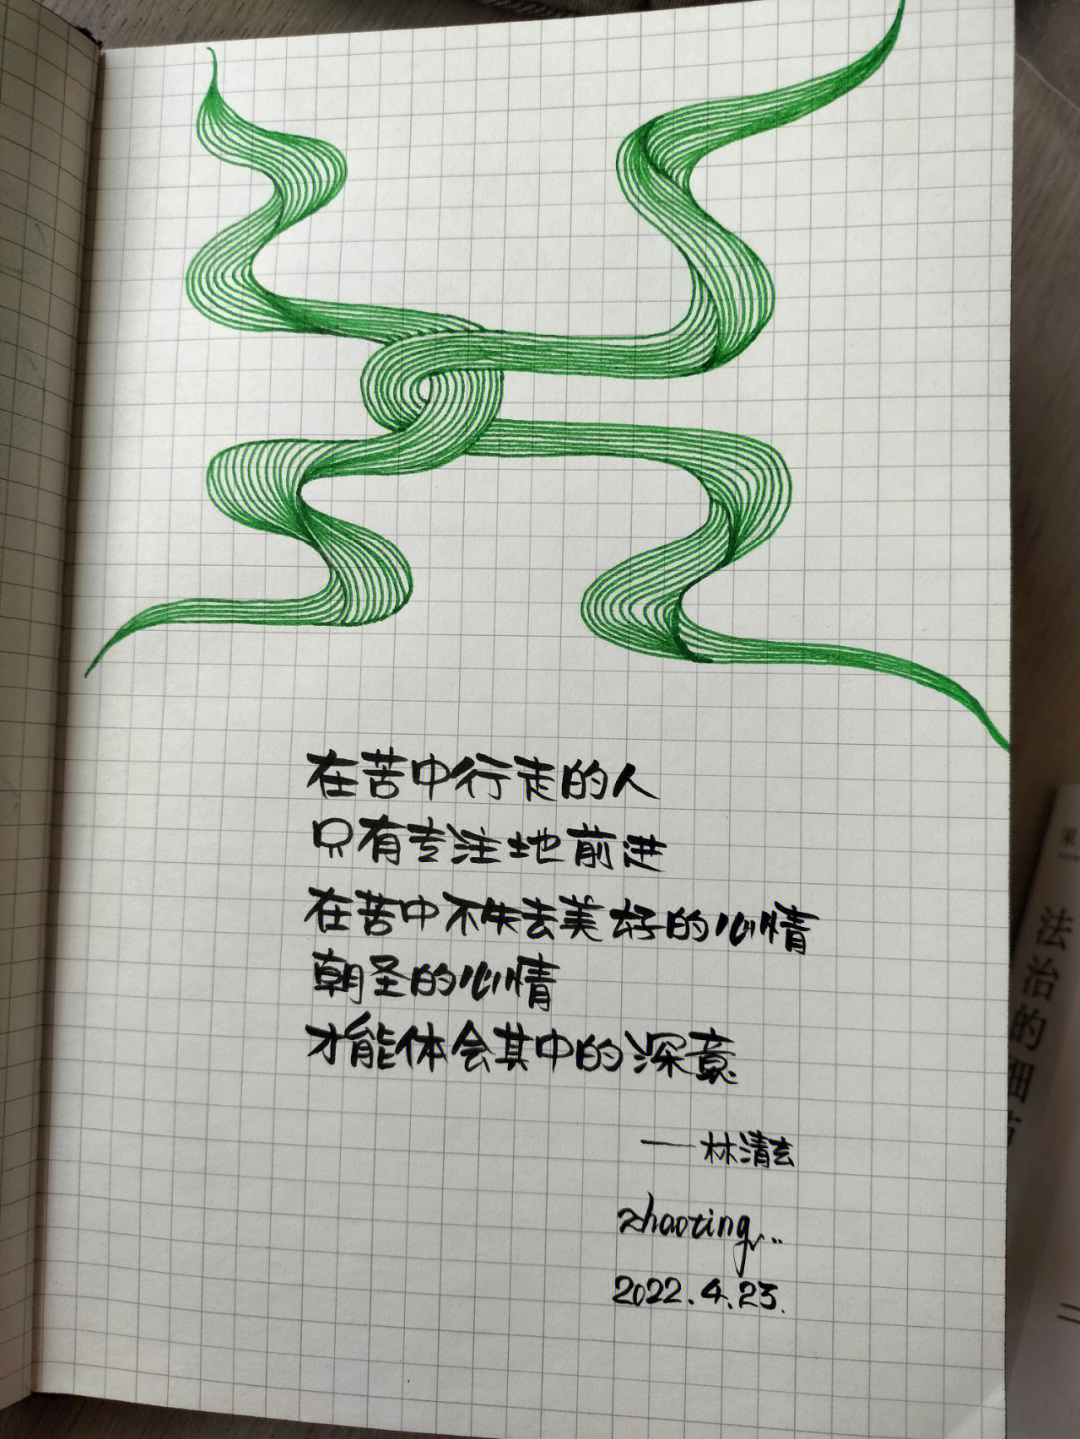 在苦中行走的人
只有专注地前进
在苦中不失去美好的心情
朝圣的心情
才能体会其中的深意
——林清玄
zhaoting...
2022.4.23.
法治的细节